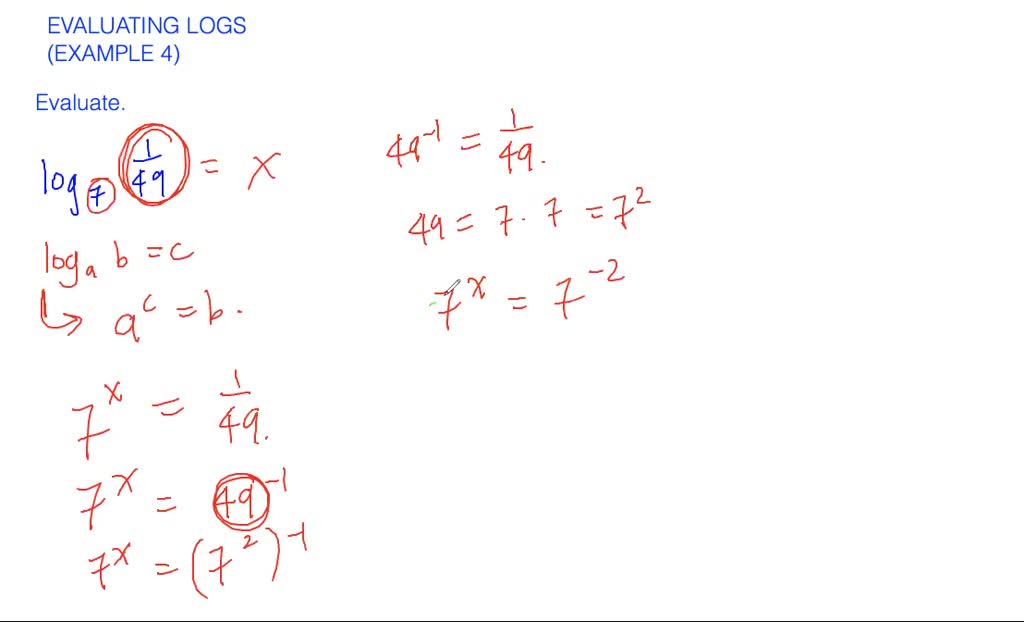 EVALUATING LOGS
(EXAMPLE 4)
Evaluate.
log₇ 1/49 = x
logₐ b = c
↳ aᶜ = b.
7ˣ = 1/49.
7ˣ = 49⁻¹
7ˣ = (7²)⁻¹
49⁻¹ = 1/49.
49 = 7 · 7 = 7²
7ˣ = 7⁻²